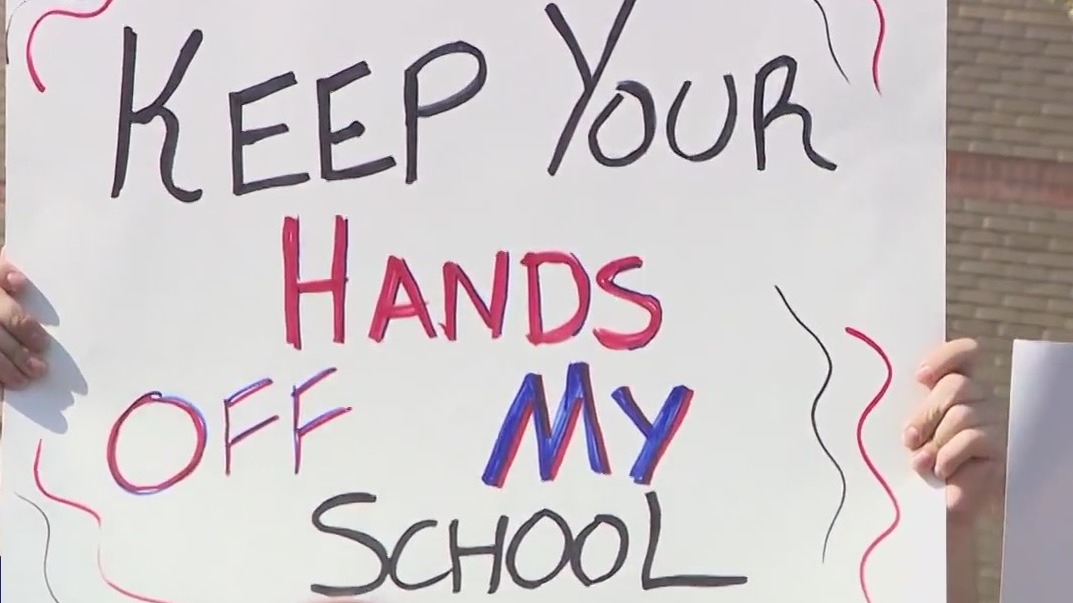 KEEP YOUR
HANDS
OFF MY
SCHOOL